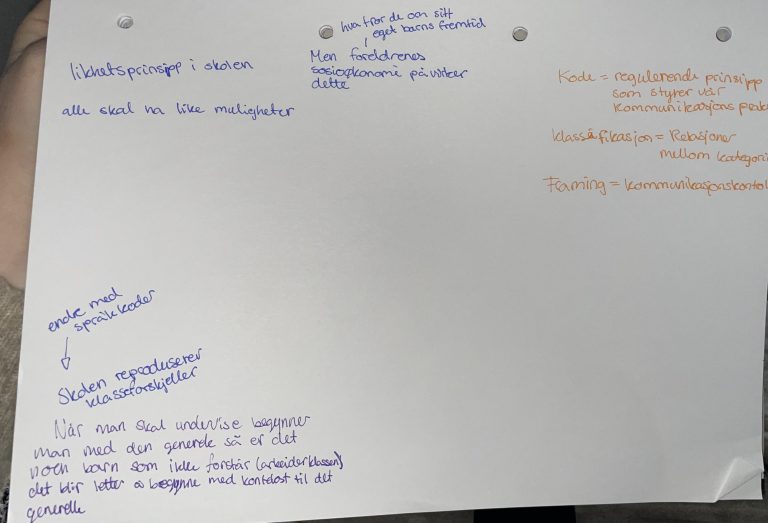 likhetsprinsipp i skolen
alle skal ha like muligheter
hva tror de om sitt
eget barns fremtid
Men foreldrenes
sosioøkonomi påvirker
dette
Kode = regulerende prinsipp
som styrer vår
kommunikasjons prak
Klassifikasjon = Relasjoner
mellom kategori
Framing = kommunikasjonskontrol
endre med
språkkoder
Skolen reproduserer
klasseforskjeller
Når man skal undervise begynner
man med den generele så er det
noen barn som ikke forstår (arbeiderklassen)
det blir letter å begynne med kontekst til det
generelle